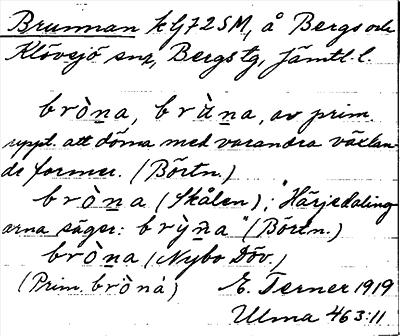 Brunnan kg72SM, å Bergs och
Klövsjö snr, Bergs tg, Jämtl. l.
bròn̲a, bràn̲a, av prim.
uppt. att döma med varandra växlan-
de former. (Börtn.)
bròn̲a (Skålen); "Härjedaling
arna säger: brỳn̲a" (Börtn.)
bròn̲a (Nybo Döv.)
(Prim. bròna) E. Terner 1919
Ulma 463:11